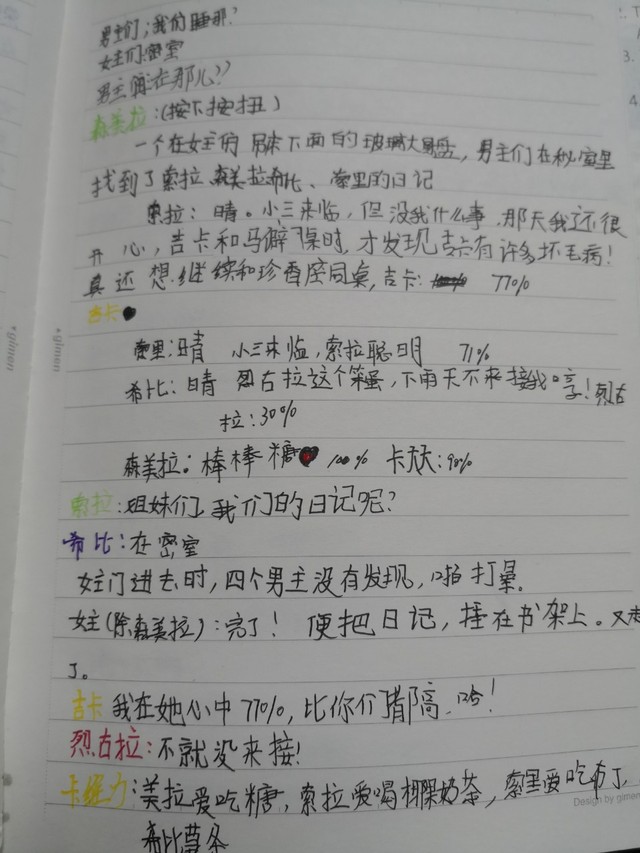 男主们；我们睡那？
女主们：密室
男主俩：在那儿？？
森美拉：（按下按扭）
一个在女主的 床下面的玻璃大圆盘，男主们在秘密里
找到了索拉、森美拉希比、索里的日记
索拉：晴。小三来临，但没我什么事，那天我还很
开心，吉卡和马 时，才发现吉卡有许多坏毛病！
真还想继续和珍香座同桌，吉卡： 77%
吉卡
索里：晴 小三来临，索拉聪明 71%
希比：晴 烈古拉这个笨蛋，下雨天不来接我哼！烈古
拉：30%
森美拉：棒棒糖 100% 卡 ：90%
索拉：姐妹们，我们的日记呢？
希比：在密室
女主门进去时，四个男主没有发现，啪打晕。
女主（除森美拉）：完了！ 便把日记， 在书架上。又走
了。
吉卡 我在她心中77%，比你们都高，哈！
烈古拉：不就没来接！
卡维力：美拉爱吃糖，索拉爱喝椰果奶茶，索里爱吃布丁
希比薯条
gimen
gimen
Design by gimen
1. T
3.
4